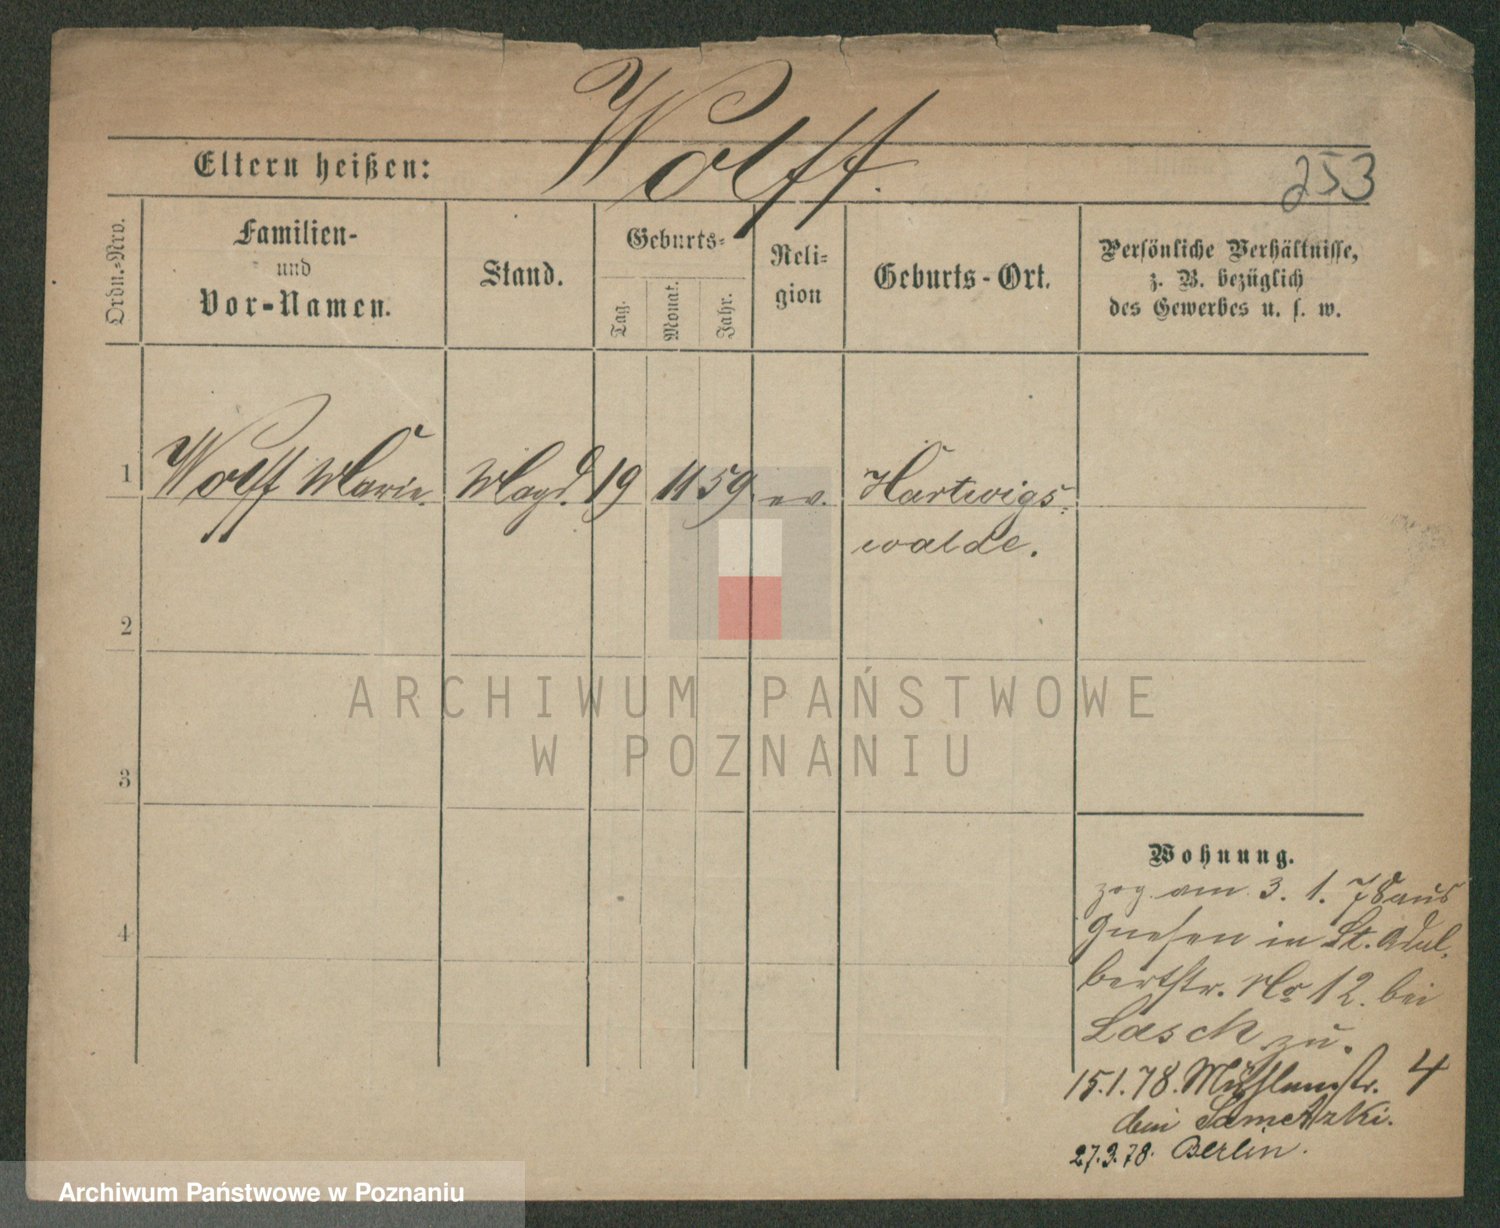 Wolff.
Eltern heißen:
253
Ordn.-Nro.
Familien-
und
Vor-Namen.
Stand.
Geburts-
Tag.
Monat.
Jahr.
Reli-
gion
Geburts-Ort.
Persönliche Verhältnisse,
z. B. bezüglich
des Gewerbes u. s. w.
1 Wolff Marie. Magd. 19 11 59 ev. Hartwigs-
walde.
2
3
4
ARCHIWUM PAŃSTWOWE
W POZNANIU
Wohnung.
zog am 3. 1. 78 aus
Gnesen in St. Adal-
bertstr. No 12. bei
Lasch zu.
15.1.78. Mühlenstr. 4
bei
27.3.78. Berlin.
Archiwum Państwowe w Poznaniu